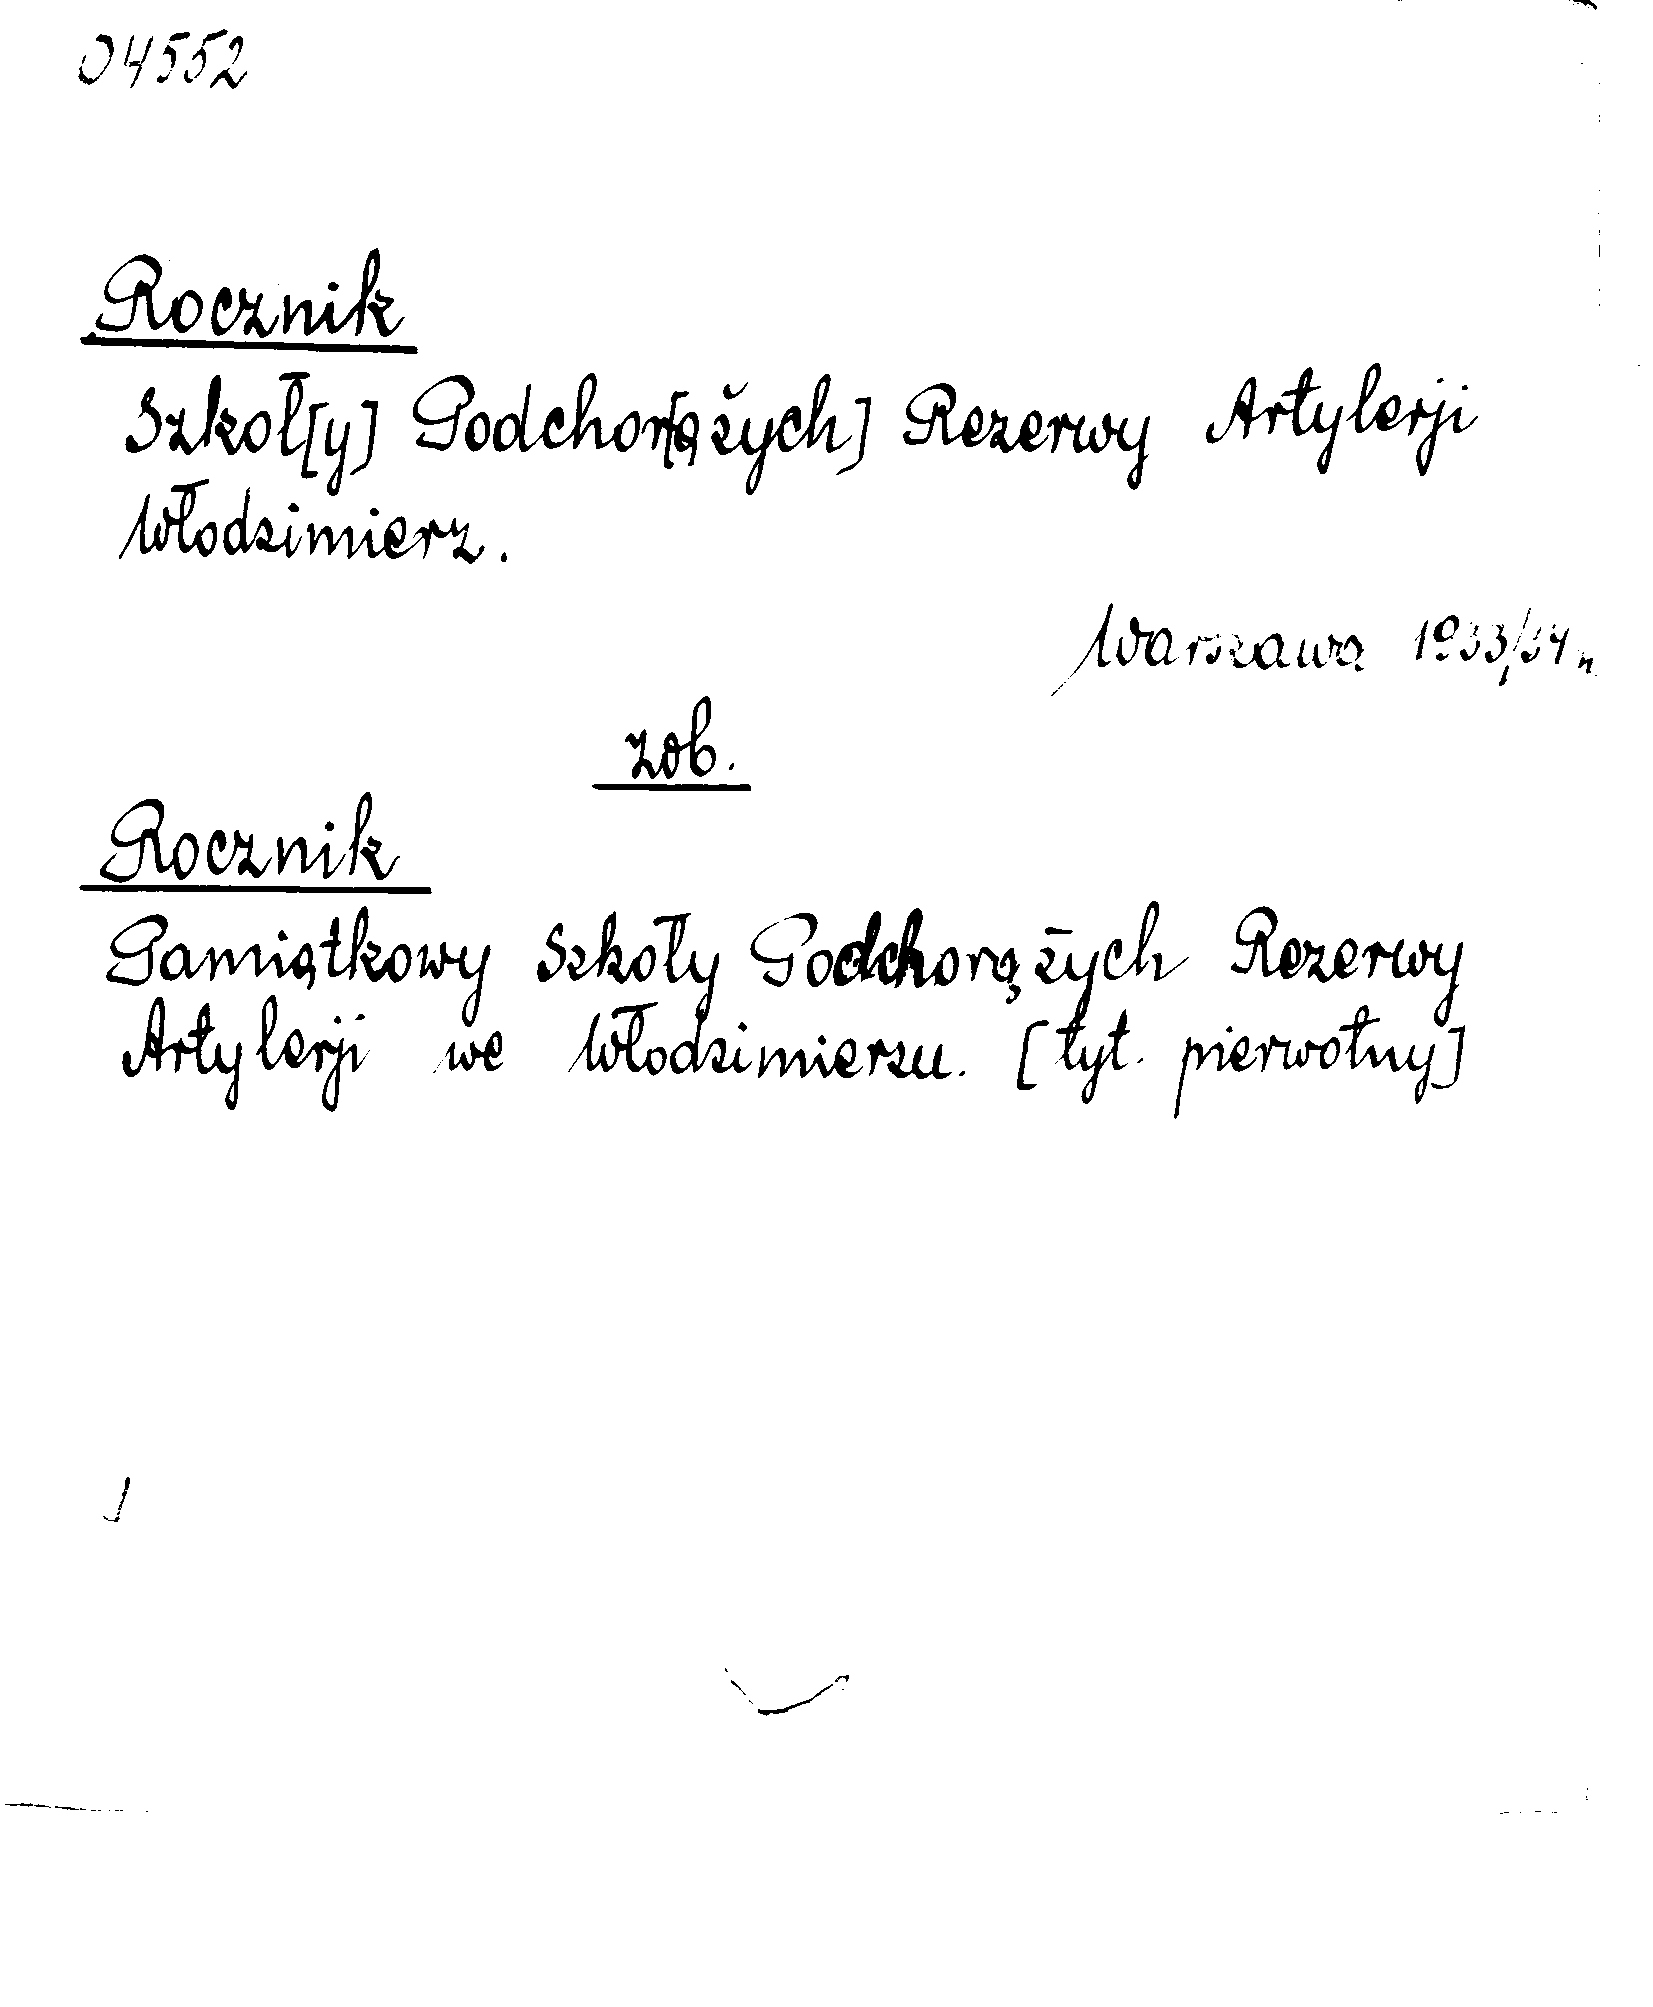 04552
Rocznik
Szkoł[y] Podchor[ążych] Rezerwy Artylerji
Włodzimierz.
Warszawa 1933/34
zob.
Rocznik
Pamiątkowy Szkoły Podchorążych Rezerwy
Artylerji we Włodzimierzu. [tyt. pierwotny]